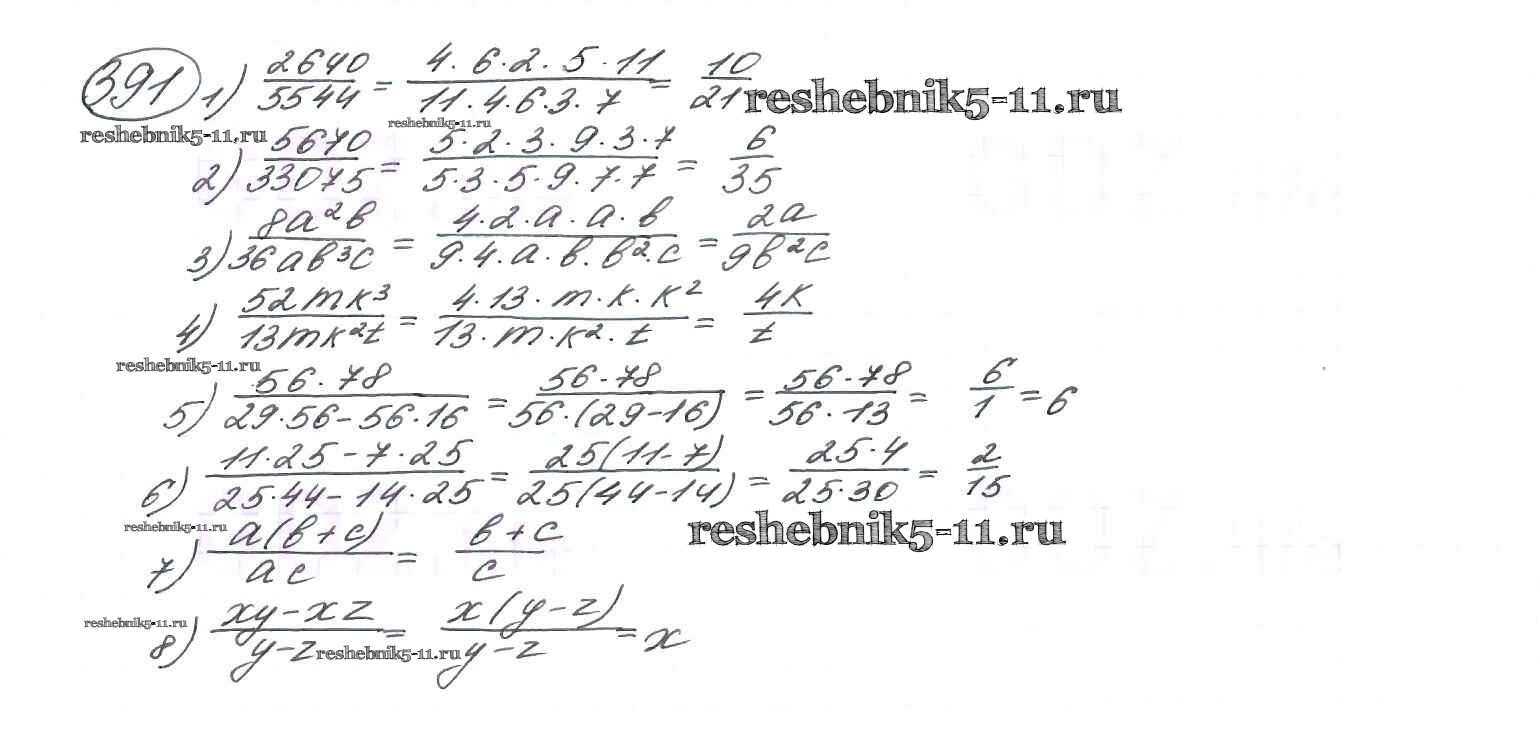 391 1) 2640/5544 = 4·6·2·5·11/11·4·6·3·7 = 10/21 reshebnik5-11.ru
reshebnik5-11.ru reshebnik5-11.ru
2) 5670/33075 = 5·2·3·9·3·7/5·3·5·9·7·7 = 6/35
3) 8a²b/36ab³c = 4·2·a·a·b/9·4·a·b·b²·c = 2a/9b²c
4) 52mk³/13mk²t = 4·13·m·k·k²/13·m·k²·t = 4k/t
reshebnik5-11.ru
5) 56·78/29·56-56·16 = 56·78/56·(29-16) = 56·78/56·13 = 6/1 = 6
6) 11·25-7·25/25·44-14·25 = 25(11-7)/25(44-14) = 25·4/25·30 = 2/15
reshebnik5-11.ru reshebnik5-11.ru
7) a(b+c)/ac = b+c/c
reshebnik5-11.ru
8) xy-xz/y-z = x(y-z)/y-z = x
reshebnik5-11.ru